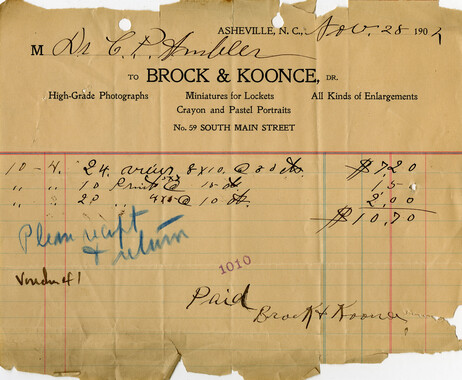 ASHEVILLE, N. C., Nov. 28 190
M Dr. C. P. Ambler
TO BROCK & KOONCE, DR.
High-Grade Photographs Miniatures for Lockets All Kinds of Enlargements
Crayon and Pastel Portraits
No. 59 SOUTH MAIN STREET
10 - 4. 24 views 8x10 @ 30 cts. $7.20
" " 10 Prints @ 15 ct. 1.50
" " 20 " @ 10 ct. 2.00
$10.70
Please receipt
& return
1010
Voucher 41
Paid
Brock & Koonce